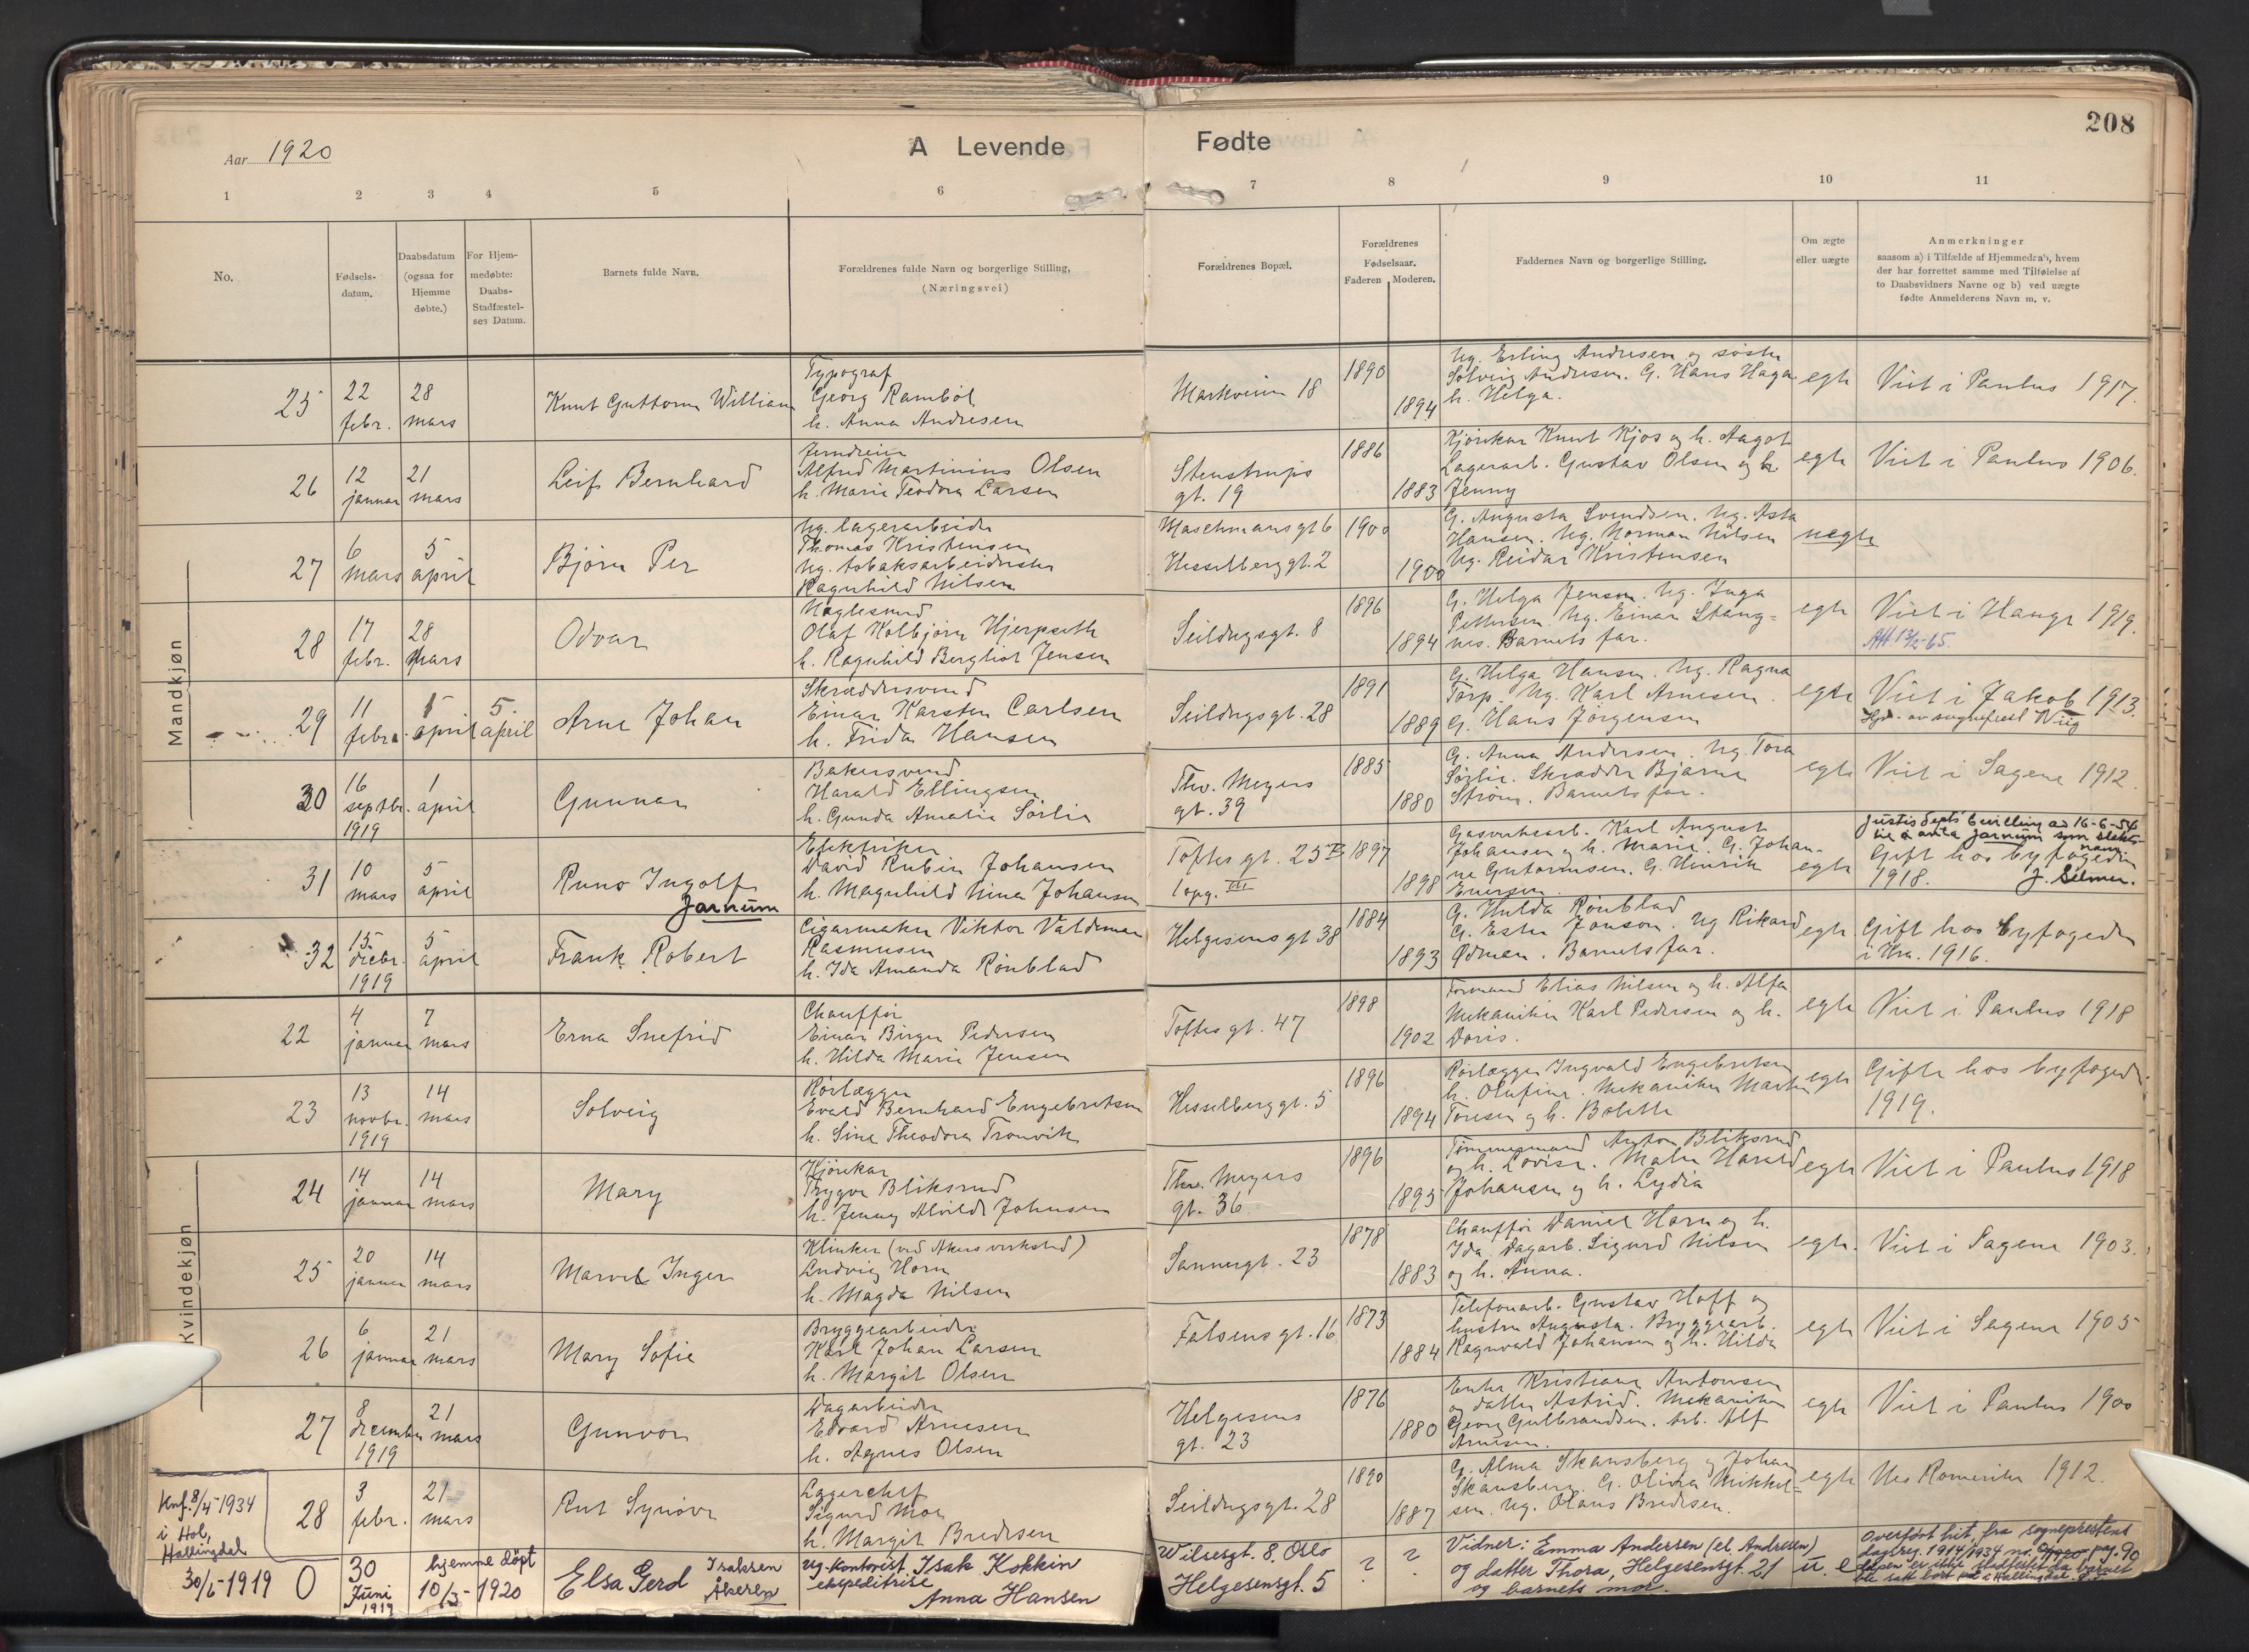 208
Aar 1920
A Levende Fødte
1 2 3 4 5 6 7 8 9 10 11
No.
Fødsels-
datum.
Daabsdatum
(ogsaa for
Hjemme
døbte.)
For Hjem-
medøbte:
Daabs-
Stadfæstel-
ses Datum.
Barnets fulde Navn.
Forældrenes fulde Navn og borgerlige Stilling,
(Næringsvei)
Forældrenes Bopæl.
Forældrenes
Fødselsaar.
Faderen Moderen.
Faddernes Navn og borgerlige Stilling.
Om ægte
eller uægte
Anmerkninger
saasom a) i Tilfælde af Hjemmedaab, hvem
der har forrettet samme med Tilføielse af
to Daabsvidners Navne og b) ved uægte
fødte Anmelderens Navn m. v.
Mandkjøn
25
22
febr.
28
mars
Knut Guttorm William
Typograf
Georg Rambøl
h. Anna Andresen
Markveien 18
1890
1894
Ug. Erling Andresen og søster
Solveig Andresen. G. Hans Haga
h. Helga.
egte
Viet i Paulus 1917.
26
12
januar
21
mars
Leif Bernhard
Jerndreier
Alfred Martinius Olsen
h. Marie Teodora Larsen
Stenstrups
gt. 19
1886
1883
Kjørekar Knut Kjos og h. Aagot
Lagerarb. Gustav Olsen og h
Jenny
egte
Viet i Paulus 1906.
27
6
mars
5
april
Bjørn Per
Ug. lagerarbeider
Thomas Kristensen
Ug. tobaksarbeiderske
Ragnhild Nilsen
Maschmansgt 6
Hesselberggt. 2
1900
1900
G. Augusta Svendsen. Ug. Asta
Hansen. Ug. Norman Nilsen
Ug. Reidar Kristensen
uegte
28
17
febr.
28
mars
Odvar
Naglesmed
Olaf Kolbjørn Hjerpseth
h. Ragnhild Bergliot Jensen
Seildugsgt. 8
1896
1894
G. Helga Jensen. Ug. Inga
Pettersen. Ug. Einar Stang-
nes. Barnets far.
egte
Viet i Hauge 1919.
29
11
febr.
1
april
5.
april
Arne Johan
Skræddersvend
Einar Karsten Carlsen
h. Frida Hansen
Seildugsgt. 28
1891
1889
G. Helga Hansen. Ug. Ragna
Torp. Ug. Karl Arnesen.
G. Hans Jørgensen
egte
Viet i Jakob 1913.
30
16
septbr.
1919
1
april
Gunnar
Bakersvend
Harald Ellingsen
h. Gunda Amalie Sørlie
Thv. Meyers
gt. 39
1885
1880
G. Anna Andersen. Ug. Tora
Sørlie. Skrædder Bjarne
Strøm. Barnets far.
egte
Viet i Sagene 1912.
31
10
mars
5
april
Runo Ingolf
Jarnum
Elektriker
David Rubin Johansen
h. Magnhild Nina Johansen
Toftes gt. 25 B
opg. III
1897
1898
Gasverksarb. Karl August
Johansen og h. Marie. G. Johan-
ne Gutormsen. G. Henrik
Enersen.
egte
Justisdepts bevilling ad 16-6-54
til å anta Jarnum som slekts-
navn.
Gift hos byfogden
1918.
32
15.
decbr.
1919
5
april
Frank Robert
Cigarmaker Viktor Valdemar
Rasmusen
h. Ida Amanda Rönblad
Helgesensgt 38
1884
1893
G. Hulda Rönblad
G. Ester Jonson. Ug Rikard
Ødmen. Barnets far.
egte
Gift hos byfogden
i Kra. 1916.
Kvindekjøn
22
4
januar
7
mars
Erna Snefrid
Chauffør
Einar Birger Pedersen
h. Hilda Marie Jensen
Toftes gt. 47
1898
1902
Formand Elias Nilsen og h. Alfa
Mekaniker Karl Pedersen og h.
Doris.
egte
Viet i Paulus 1918
23
13
novbr.
1919
14
mars
Solveig
Rørlægger
Evald Bernhard Engebretsen
h. Sine Theodora Tronvik
Hesselberggt. 5
1896
1894
Rørlægger Ingvald Engebretsen
h. Olufine. Mekaniker Martin
Toresen og h. Bolette
egte
Gifte hos byfogden
1919.
24
14
januar
14
mars
Mary
Kjørekar
Trygve Bliksrud
h. Jenny Alvilde Johnsen
Thv. Meyers
gt. 36
1896
1895
Tømmermand Anton Bliksrud
og h. Lovise. Maler Harald
Johansen og h. Lydia
egte
Viet i Paulus 1918
25
20
januar
14
mars
Marvel Inger
Klinker (ved Akers verksted)
Ludvig Horn
h. Magda Nilsen
Sannergt. 23
1878
1883
Chauffør Daniel Horn og h.
Ida. Dagarb. Sigurd Nilsen
og h. Anna.
egte.
Viet i Sagene 1903.
26
6
januar
21
mars
Mary Sofie
Bryggearbeider
Karl Johan Larsen
h. Margit Olsen
Falsens gt. 16
1873
1884
Telefonarb. Gustav Hoff og
hustru Augusta. Bryggearb.
Ragnvald Johansen og h. Hilda
egte
Viet i Sagene 1905
27
8
december
1919
21
mars
Gunvor
Dagarbeider
Edvard Arnesen
h. Agnes Olsen
Helgesens
gt. 23
1876
1880
Enke Kristiane Antonsen
og datter Astrid. Mekaniker
Georg Gulbrandsen. Arb. Alf
Arnesen.
egte
Viet i Paulus 1900
Knf. 8/4-1934
i Hol,
Hallingdal
28
3
febr.
21
mars
Rut Synøve
Lagerchef
Sigurd Moe
h. Margit Bredesen
Seildugsgt. 28
1890
1887
G. Alma Skansberg og Johan
Skansberg. G. Olivia Mikkel-
sen. Ug. Olaus Bredesen.
egte
Nes Romerike 1912.
30/6-1919
0
30
Juni
1919
hjemme døpt
10/3-1920
Elsa Gerd Isaksen
Åkeren
ug. kontorist Isak Kokkin
ekspeditrise
Anna Hansen
Wilsesgt. 8. Oslo
Helgesensgt. 5
?
?
Vidner: Emma Andersen (el. Andresen)
og datter Thora, Helgesensgt. 21
og barnets mor.
u. e
Overført hit, fra sogneprestens
dagreg. 1914/1934 pag. 90